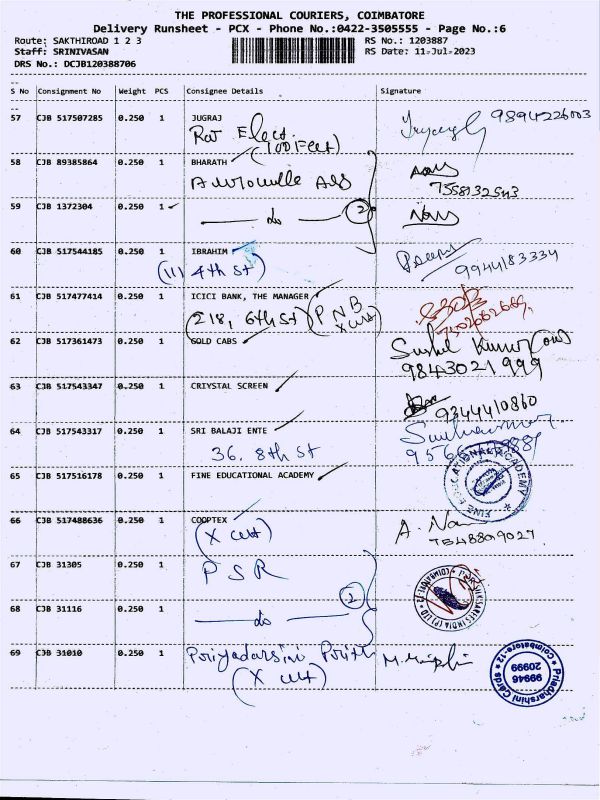 THE PROFESSIONAL COURIERS, COIMBATORE
Delivery Runsheet - PCX - Phone No.:0422-3505555 - Page No.:6
Route: SAKTHIROAD 1 2 3 RS No.: 1203887
Staff: SRINIVASAN RS Date: 11-Jul-2023
DRS No.: DCJB120388706
S No Consignment No Weight PCS Consignee Details Signature
57 CJB 517507285 0.250 1 JUGRAJ 9894226003
(100 Feet)
58 CJB 89385864 0.250 1 BHARATH
7558132543
59 CJB 1372304 0.250 1 do 2
60 CJB 517544185 0.250 1 IBRAHIM
(11) 4th St 9944183334
61 CJB 517477414 0.250 1 ICICI BANK, THE MANAGER
(218, 6th St) (PNB X cut)
62 CJB 517361473 0.250 1 GOLD CABS
9843021999
63 CJB 517543347 0.250 1 CRIYSTAL SCREEN 9344410860
64 CJB 517543317 0.250 1 SRI BALAJI ENTE
36. 8th St
65 CJB 517516178 0.250 1 FINE EDUCATIONAL ACADEMY
FINE EDUCATIONAL ACADEMY
66 CJB 517488636 0.250 1 COOPTEX
(X cut)
67 CJB 31305 0.250 1 PSR
68 CJB 31116 0.250 1 do 2
69 CJB 31010 0.250 1 Priyadarsini
(X cut)
Priadharshini Cards
99946
20999
coimbatore-12